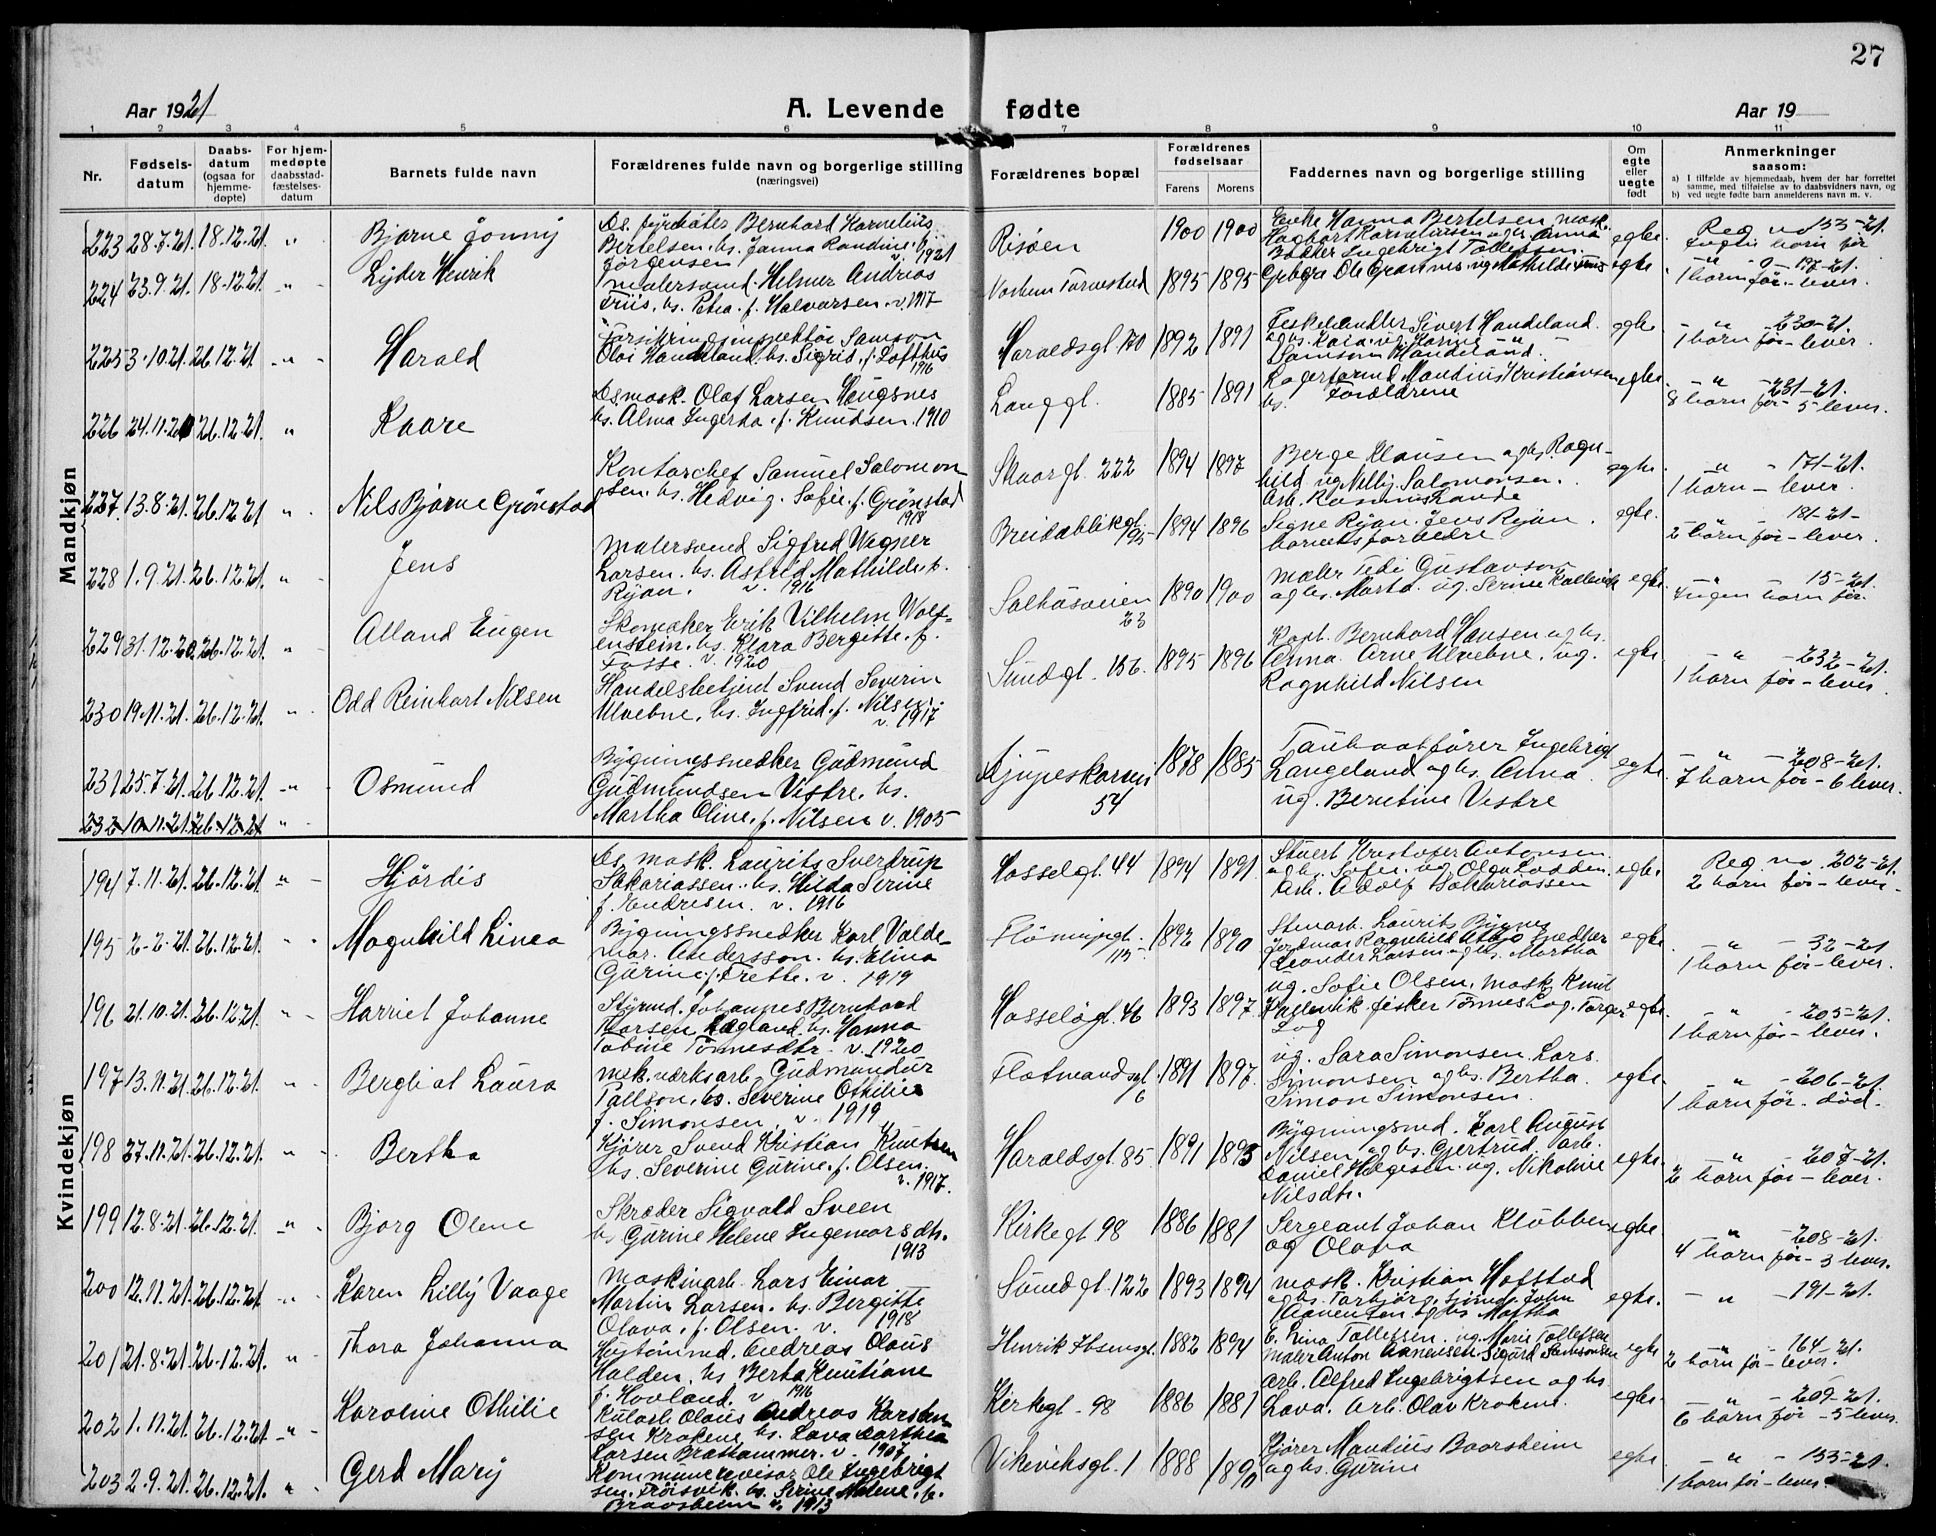 27
Aar 1921
A. Levende fødte
Aar 19
1 2 3 4 5 6 7 8 9 10 11
Nr.
Fødsels-
datum
Daabs-
datum
(ogsaa for
hjemme-
døpte)
For hjem-
medøpte
daabsstad-
fæstelses-
datum
Barnets fulde navn
Forældrenes fulde navn og borgerlige stilling
(næringsvei)
Forældrenes bopæl
Forældrenes
fødselsaar
Farens Morens
Faddernes navn og borgerlige stilling
Om
egte
eller
uegte
født
Anmerkninger
saasom:
a) I tilfælde av hjemmedaab, hvem der har forrettet
samme, med tilføielse av to daabsvidners navn, og
b) ved uegte fødte barn anmelderens navn m. v.
Mandkjøn
223 28.7.21. 18.12.21. " Bjarne Jonny
Ds. fyrbøter Bernhart Kornelius
Bertelsen. hs. Janna Randine f.
Jørgensen v. 1921
Risøen 1900 1900
Enke Hanna Bertelsen, mask.
Hagbart Korneliussen og hs. Anna
Ingebrigt Tollefsen.
egte. Reg no 153-21.
Ingen barn før
224 23.9.21. 18.12.21. " Lyder Henrik
Malersvend. Helmer Andreas
Friis, hs. Petra. f. Halvorsen. v. 1917
1895 1895
egte " 197-21.
1 barn før - lever.
225 3.10.21. 26.12.21. " Harald
Forsikringsinspektør Samson
Olai Handeland. hs. Sigrid. f. Lofthus
1916
Haraldsgt. 170 1892 1891
Fiskehandler Sivert Handeland.
og hs. Kaia. ug. Karine "
Samson Handeland.
egte " 230-21.
1 barn før - lever.
226 24.11.20 26.12.21. " Kaare
Ds. mask. Olaf Larsen Haugsnes
hs. Alma Ingerta. f. Knudsen. 1910
Langgt. 1885 1891
Lagerformd. Mandius Kristiansen
hs. Forældrene
egte. " 231-21.
8 barn før - 5 lever.
227. 13.8.21. 26.12.21 " Nils Bjarne Grønstad
Kontorchef Samuel Salomon
sen. hs. Hedvig. Sofie. f. Grønstad
1918
Skaargt. 222 1894 1897
Berge Klausen og hs. Ragn-
hild ug. Nelly Salomonsen.
Arb. Rasmus Lande
egte. " - 171-21.
1 barn - lever.
228 1.9.21. 26.12.21. " Jens
Malersvend Sigfred Wagner
Larsen. hs. Astrid Mathilde f.
Ryan. v. 1916
Breidablikgt. 195 1894 1896
Signe Ryan. Jens Ryan.
barnets forældre
egte. - 181-21-
2 børn før - lever.
229 31.12.20. 26.12.21. " Alland Eugen
Skomaker Erik Vilhelm Wolf-
enstein. hs. Klara Bergitte. f.
Fosse. v. 1920
Salhusveien
23 1890 1900
Maler Tedi Gustavson
og hs. Marta. ug. Serine Kallevik
egte. " - 15-21.
Ingen barn før.
230 19.11.21. 26.12.21. " Odd Reinhart Nilsen
Handelsbetjent Svend Severin
Ulvebne. hs. Ingfrid. f. Nilsen.
v. 1917
Sundgt. 156. 1895 1896
Kapt. Bernhard Hansen og hs.
Anna. Arne Ulvebne. ug.
Ragnhild Nilsen
egte. " - 232-21.
1 barn før - lever.
231 25.7.21. 26.12.21. " Osmund
Bygningssnedker Gudmund
Gudmundsen Vistre. hs.
Martha Oline. f. Nilsen v. 1905
Djupeskarvei
54 1878 1885
Taubaatfører Ingebrigt
Langeland og hs. Anna.
ug. Berntine Vestre
egte. " - 208-21.
7 barn før - 6 lever.
232 10.11.21. 26.12.21 "
Kvindekjøn
194 7.11.21. 26.12.21 " Hjørdis
Ds. mask. Laurits Sverdrup
Sakariassen. hs. Hilda Serine
f. Endresen. v. 1916
Hasselgt. 44 1894 1891.
Stuert Kristofer Antonsen
og hs. Sofie. ug. Olga Lodden.
Arb. Adolf Sakariassen
egte. Reg. no. 202-21.
2 børn før - lever.
195 2.2.21. 26.12.21. " Magnhild Linea
Bygningssnedker Karl Valde-
mar. Andersson. hs. Elina
Gurine. f. Frette. v. 1919
115 1892 1890
Stenarb. Laurits
Jordmor Ragnhild snedker
Leander Larsen og hs. Martha
egte " - 32-21
1 barn før - lever.
196 21.10.21. 26.12.21. " Harriet Johanne
Styrmd. Johannes Bernhard
Larsen Lægland. hs. Hanna
Tobine Tønnesdtr. v. 1920
Hasseløgt. 46 1893 1897.
ug. Sofie Olsen, mask. Knut
Kallevik. fisker Tønnes Log. Torger
Log
egte. " - 205-21.
1 barn før - lever.
197 13.11.21. 26.12.21. " Bergliot Laura
mek. værksarb. Gudmundur
Pallson. hs. Severine Othilie
f. Simonsen. v. 1919
Flotmandsgt.
6 1891 1897.
ug. Sara Simonsen. Lars
Simonsen og hs. Bertha.
Simon Simonsen.
egte. " - 206-21.
1 barn før - død.
198 27.11.21. 26.12.21. " Bertha
Kjører Svend Kristian Knutsen
hs. Severine Gurine. f. Olsen.
v. 1917.
Haraldsgt. 85 1891 1893
Bygningssned. Karl August
Nilsen og hs. Gjertrud. arb.
Daniel Helgesen. ug. Nikoline
Nilsdtr.
egte. " - 207-21.
2 børn før - lever.
199 12.8.21. 26.12.21. " Bjørg Olene
Skræder Sigvald Sveen
hs. Gurine Helene Ingemarsdtr.
1913
Kirkegt 98 1886 1881
Sergeant Johan Klubben
og Olava
egte. " - 208-21.
4 barn før - 3 lever.
200 12.11.21. 26.12.21. " Karen Lilly Vaage
Maskinarb. Lars Einar
Martin Larsen. hs. Bergitte
Olava. f. Olsen. v. 1918
Sundgt. 122 1893 1894
mask. Kristian Hofstad
og hs. Torbjørg. John
Aanensen. og hs. Martha
egte. - " - 191-21.
201 21.8.21. 26.12.21. " Thora Johanna
Andreas Olaus
Halden. hs. Berta Knutiane
f. Hovland. v. 1916
Henrik Ibsensgt. 1882 1894
E. Lina Tollefsen. ug. Marie Tollefsen
Maler Anton Aanensen. Sigurd Samsonsen
egte " - 164-21.
2 børn før - lever.
202 1.11.21. 26.12.21. " Karoline Othilie
Kularb. Olaus Andreas Karsten-
sen Krokene. hs. Lava Dorthea
Larsen Brathammer. v. 1907
Kirkegt. 98 1886 1881
Arb. Alfred Ingebrigtsen og hs
Lava. Arb. Olav Krokene.
egte. " - 209-21.
6 børn før - 5 lever.
203 2.9.21. 26.12.21. " Gerd Mary
Kommunerevisor Ole Ingebrigt
sen. Frøisvik. hs. Serine Malene. f.
Braarsheim v. 1913
Vikeviksgt. 1 1888 1890
Kjører Mandius Baarsheim
og hs. Gurine
egte. " - 155-21.
1 barn før - lever.